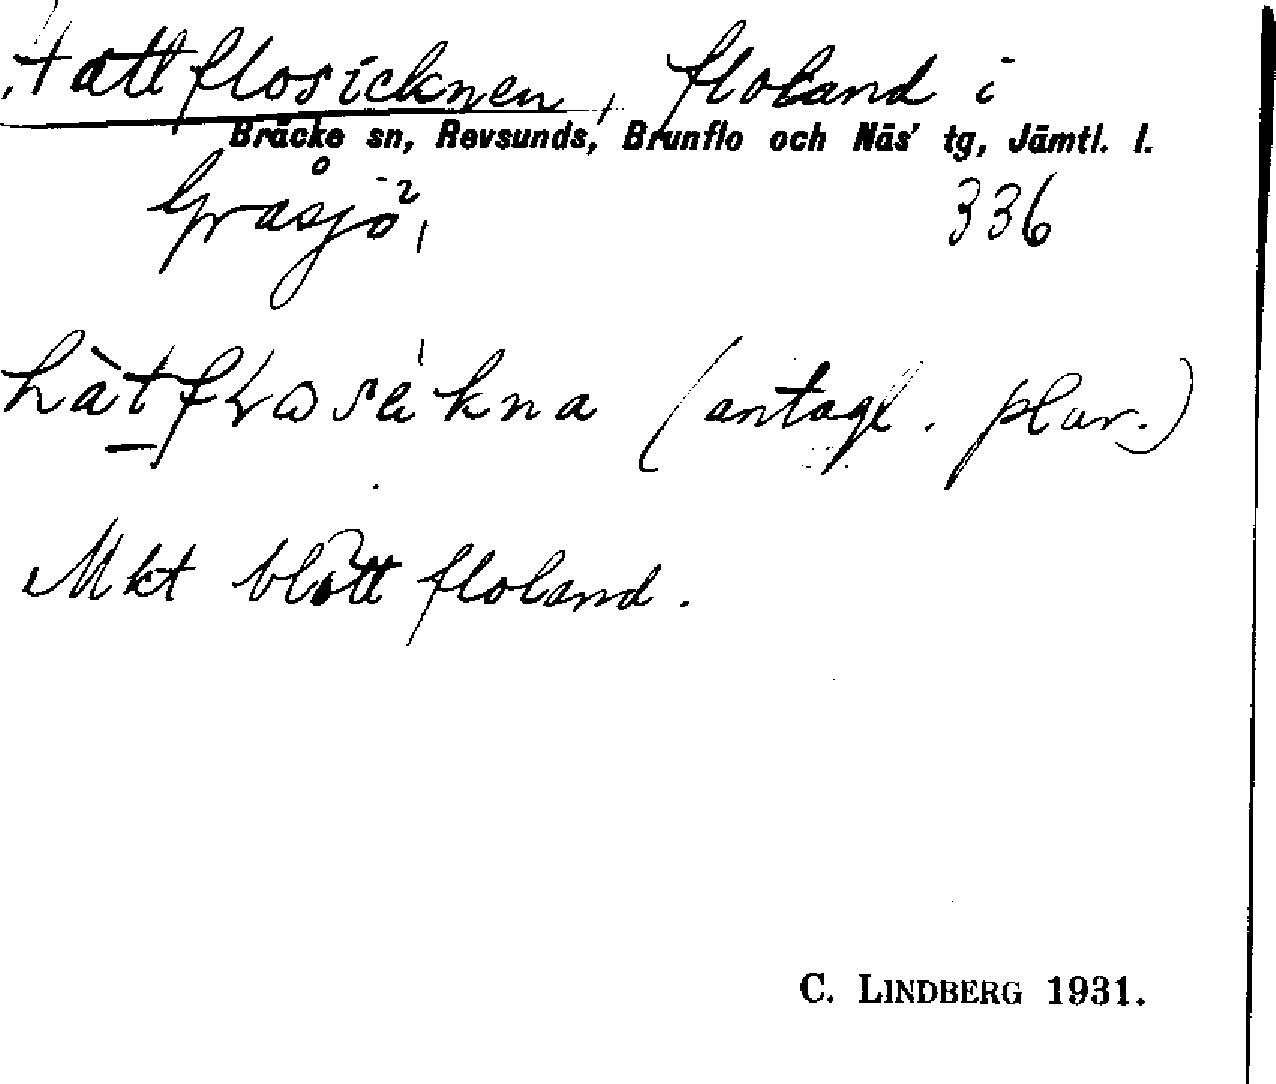 Hattflosicknen, floland i
Bräcke sn, Revsunds, Brunflo och Näs' tg, Jämtl. l.
Gråsjö², 336
(antagl. plur.)
Mkt blött floland.
C. LINDBERG 1931.